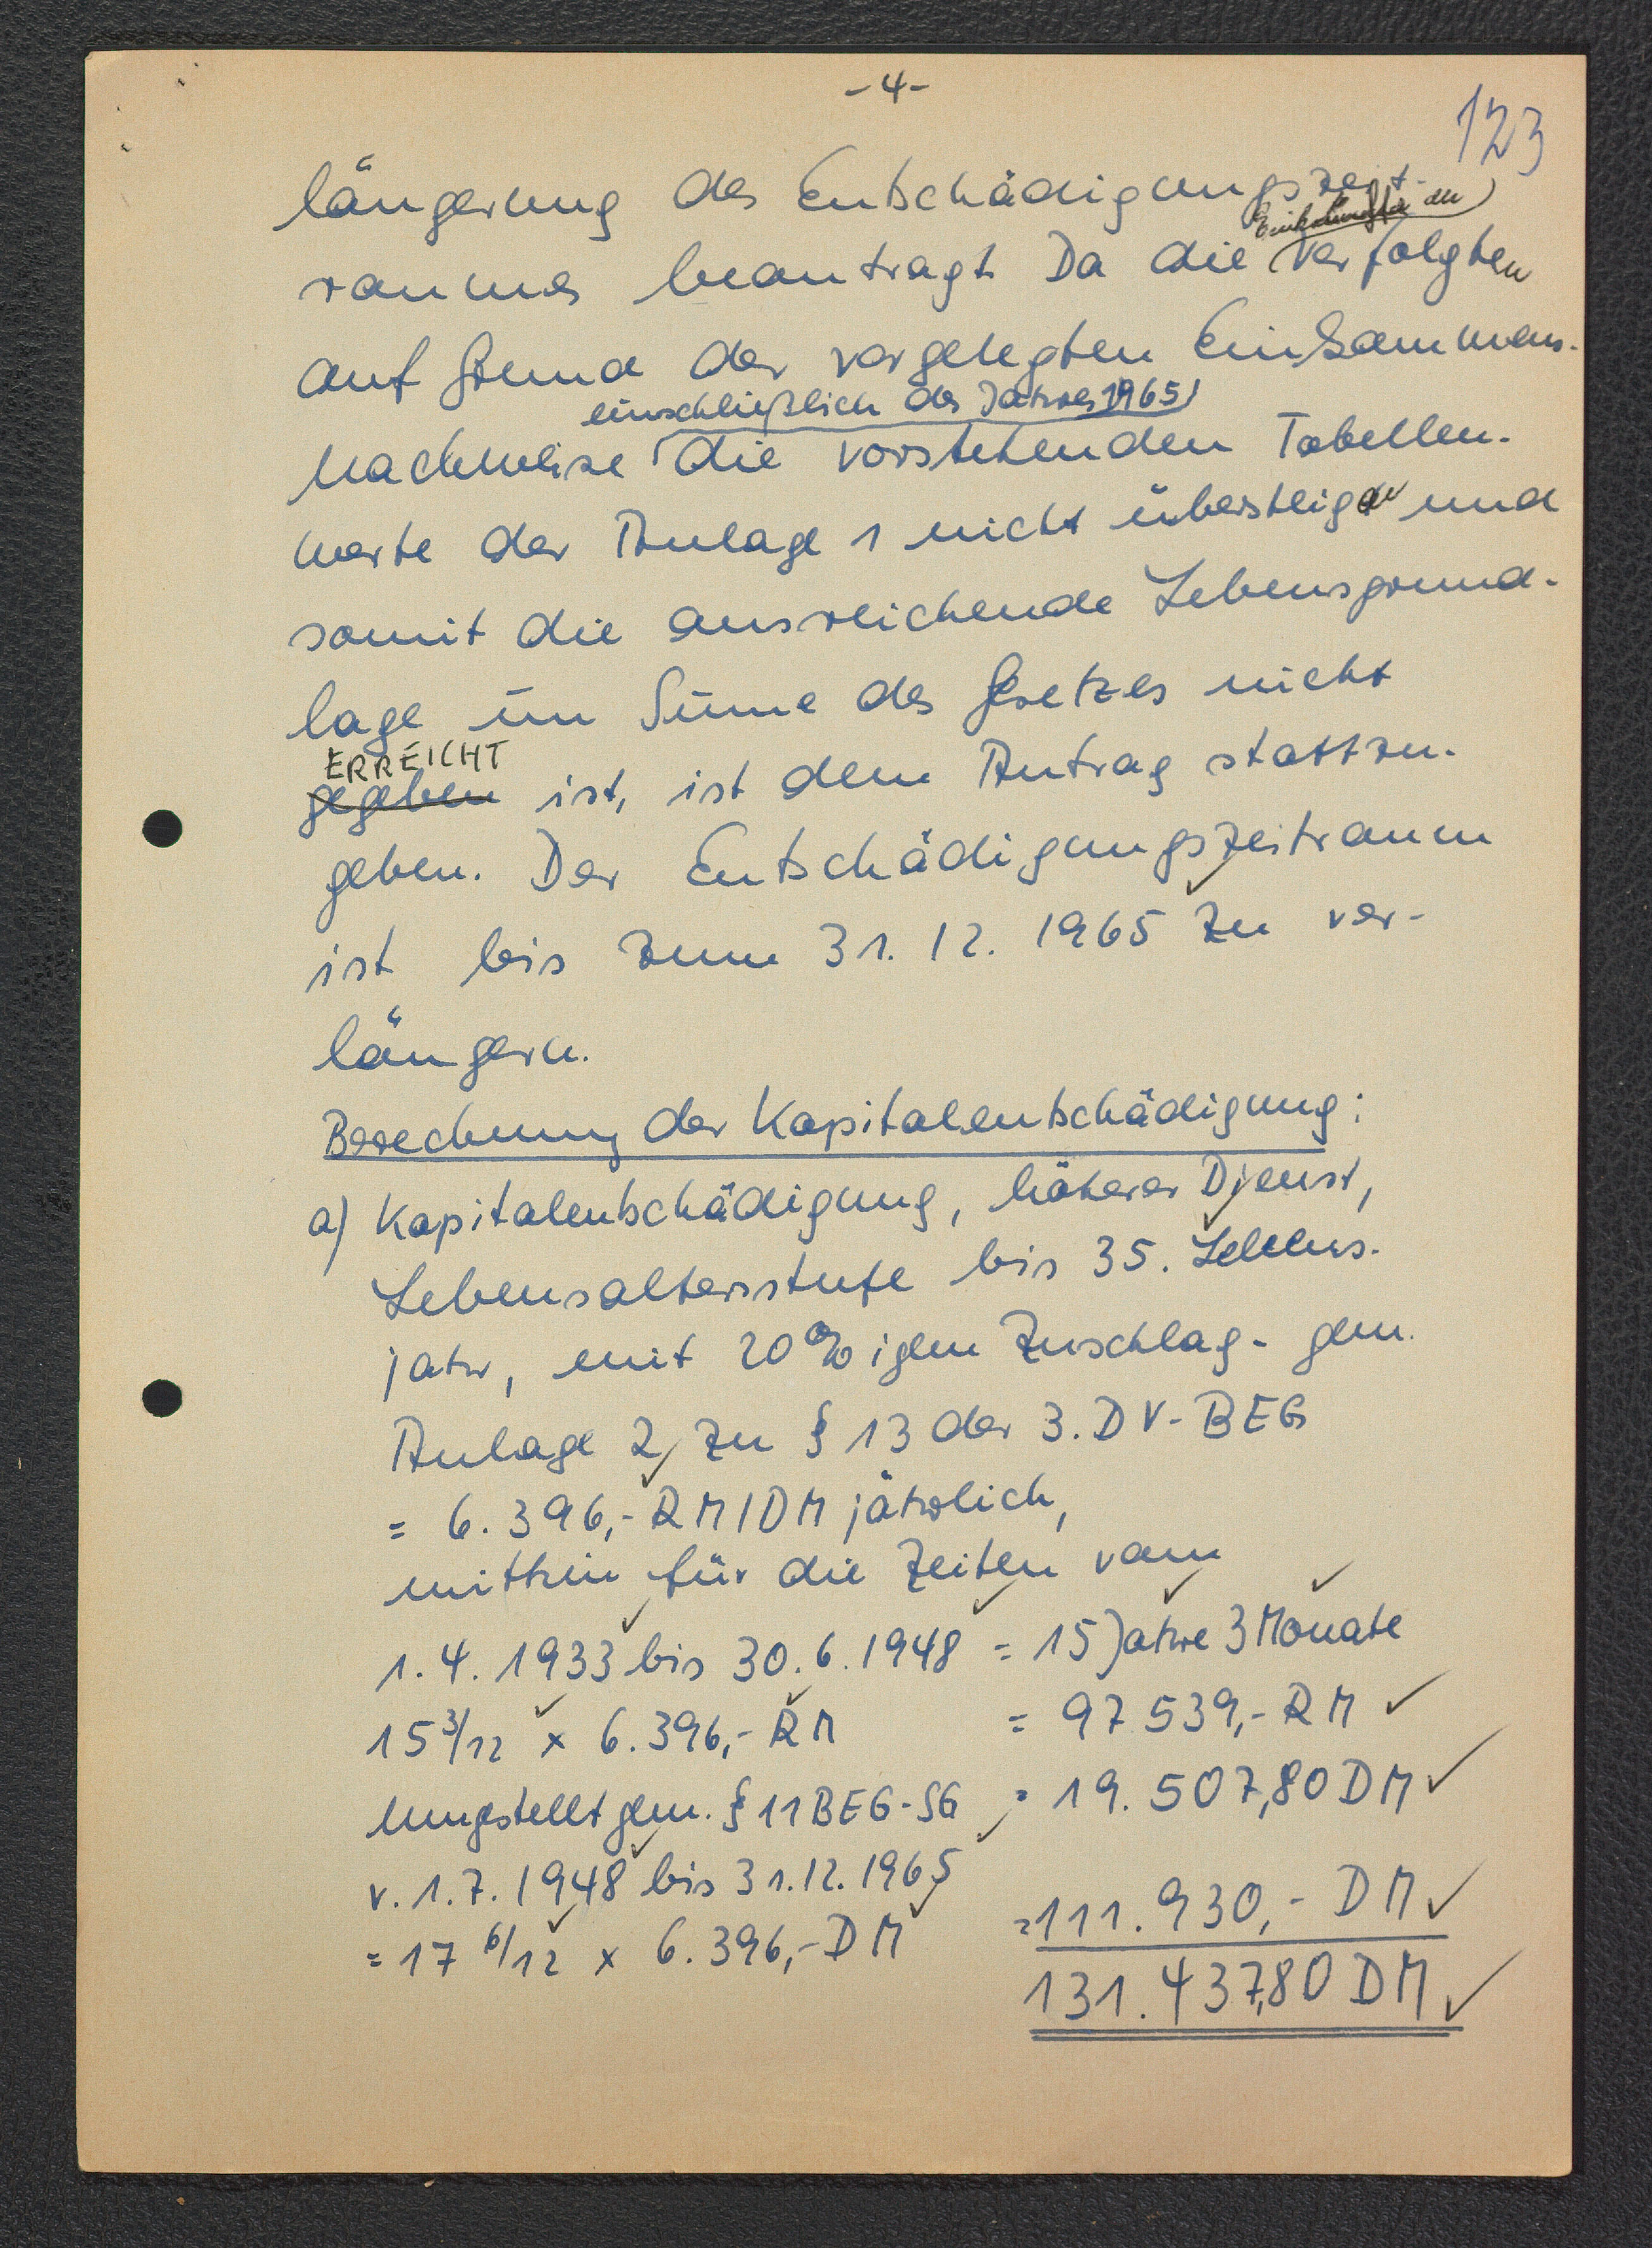 -4-
123
längerung des Entschädigungszeit-
Einkünfte der
raumes beantragt. Da die Verfolgten
auf Grund der vorgelegten Einkommens-
einschließlich des Jahres 1965
nachweise die vorstehenden Tabellen-
werte der Anlage 1 nicht übersteigen und
somit die ausreichende Lebensgrund-
lage im Sinne des Gesetzes nicht
ERREICHT
gegeben ist, ist dem Antrag stattzu-
geben. Der Entschädigungszeitraum
ist bis zum 31.12.1965 zu ver-
längern.
Berechnung der Kapitalentschädigung:
a) Kapitalentschädigung, höherer Dienst,
Lebensaltersstufe bis 35. Lebens-
jahr, mit 20%igem Zuschlag- gem.
Anlage 2 zu § 13 der 3. DV-BEG
= 6.396,- RM/DM jährlich,
mithin für die Zeiten vom
1.4.1933 bis 30.6.1948 = 15 Jahre 3 Monate
15 3/12 x 6.396,- RM = 97.539,- RM
umgestellt gem. § 11 BEG-SG = 19.507,80 DM
v. 1.7.1948 bis 31.12.1965
= 17 6/12 x 6.396,- DM = 111.930,- DM
131.437,80 DM